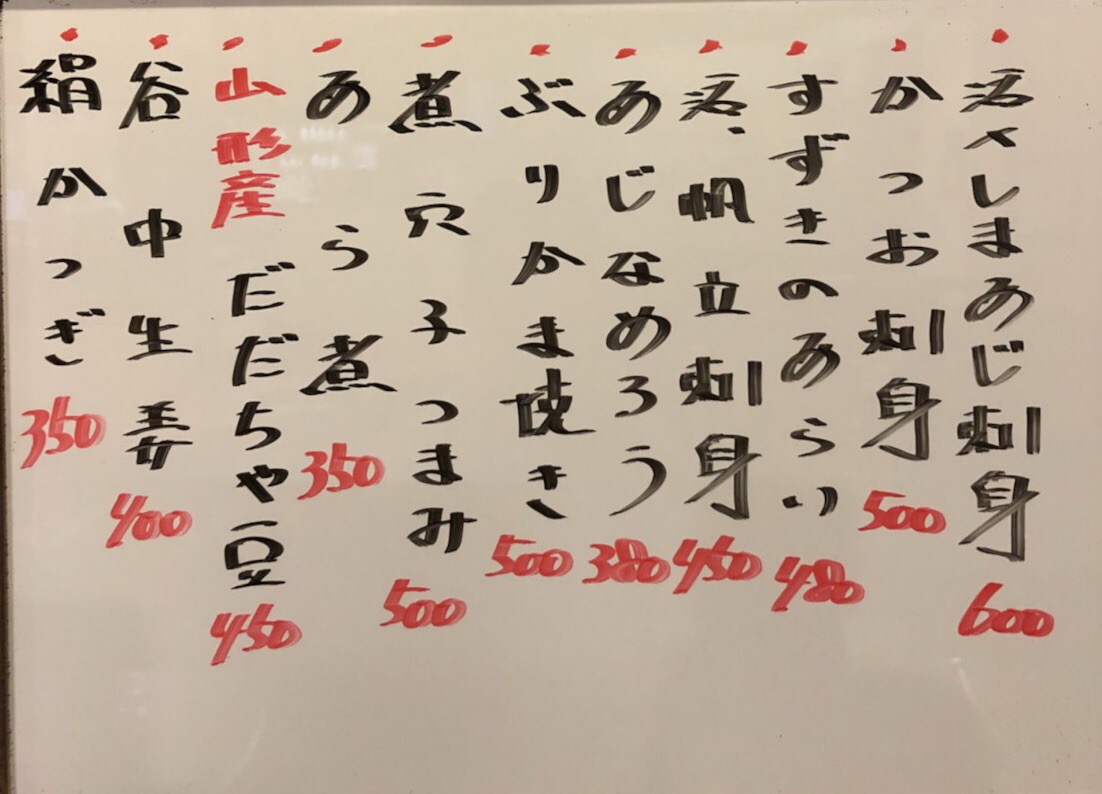 活〆しまあじ刺身 600
かつお刺身 500
すずきのあらい 480
活、帆立刺身 450
あじなめろう 380
ぶりかま焼き 500
煮穴子つまみ 500
あら煮 350
山形産だだちゃ豆 450
谷中生姜 400
絹かつぎ 350